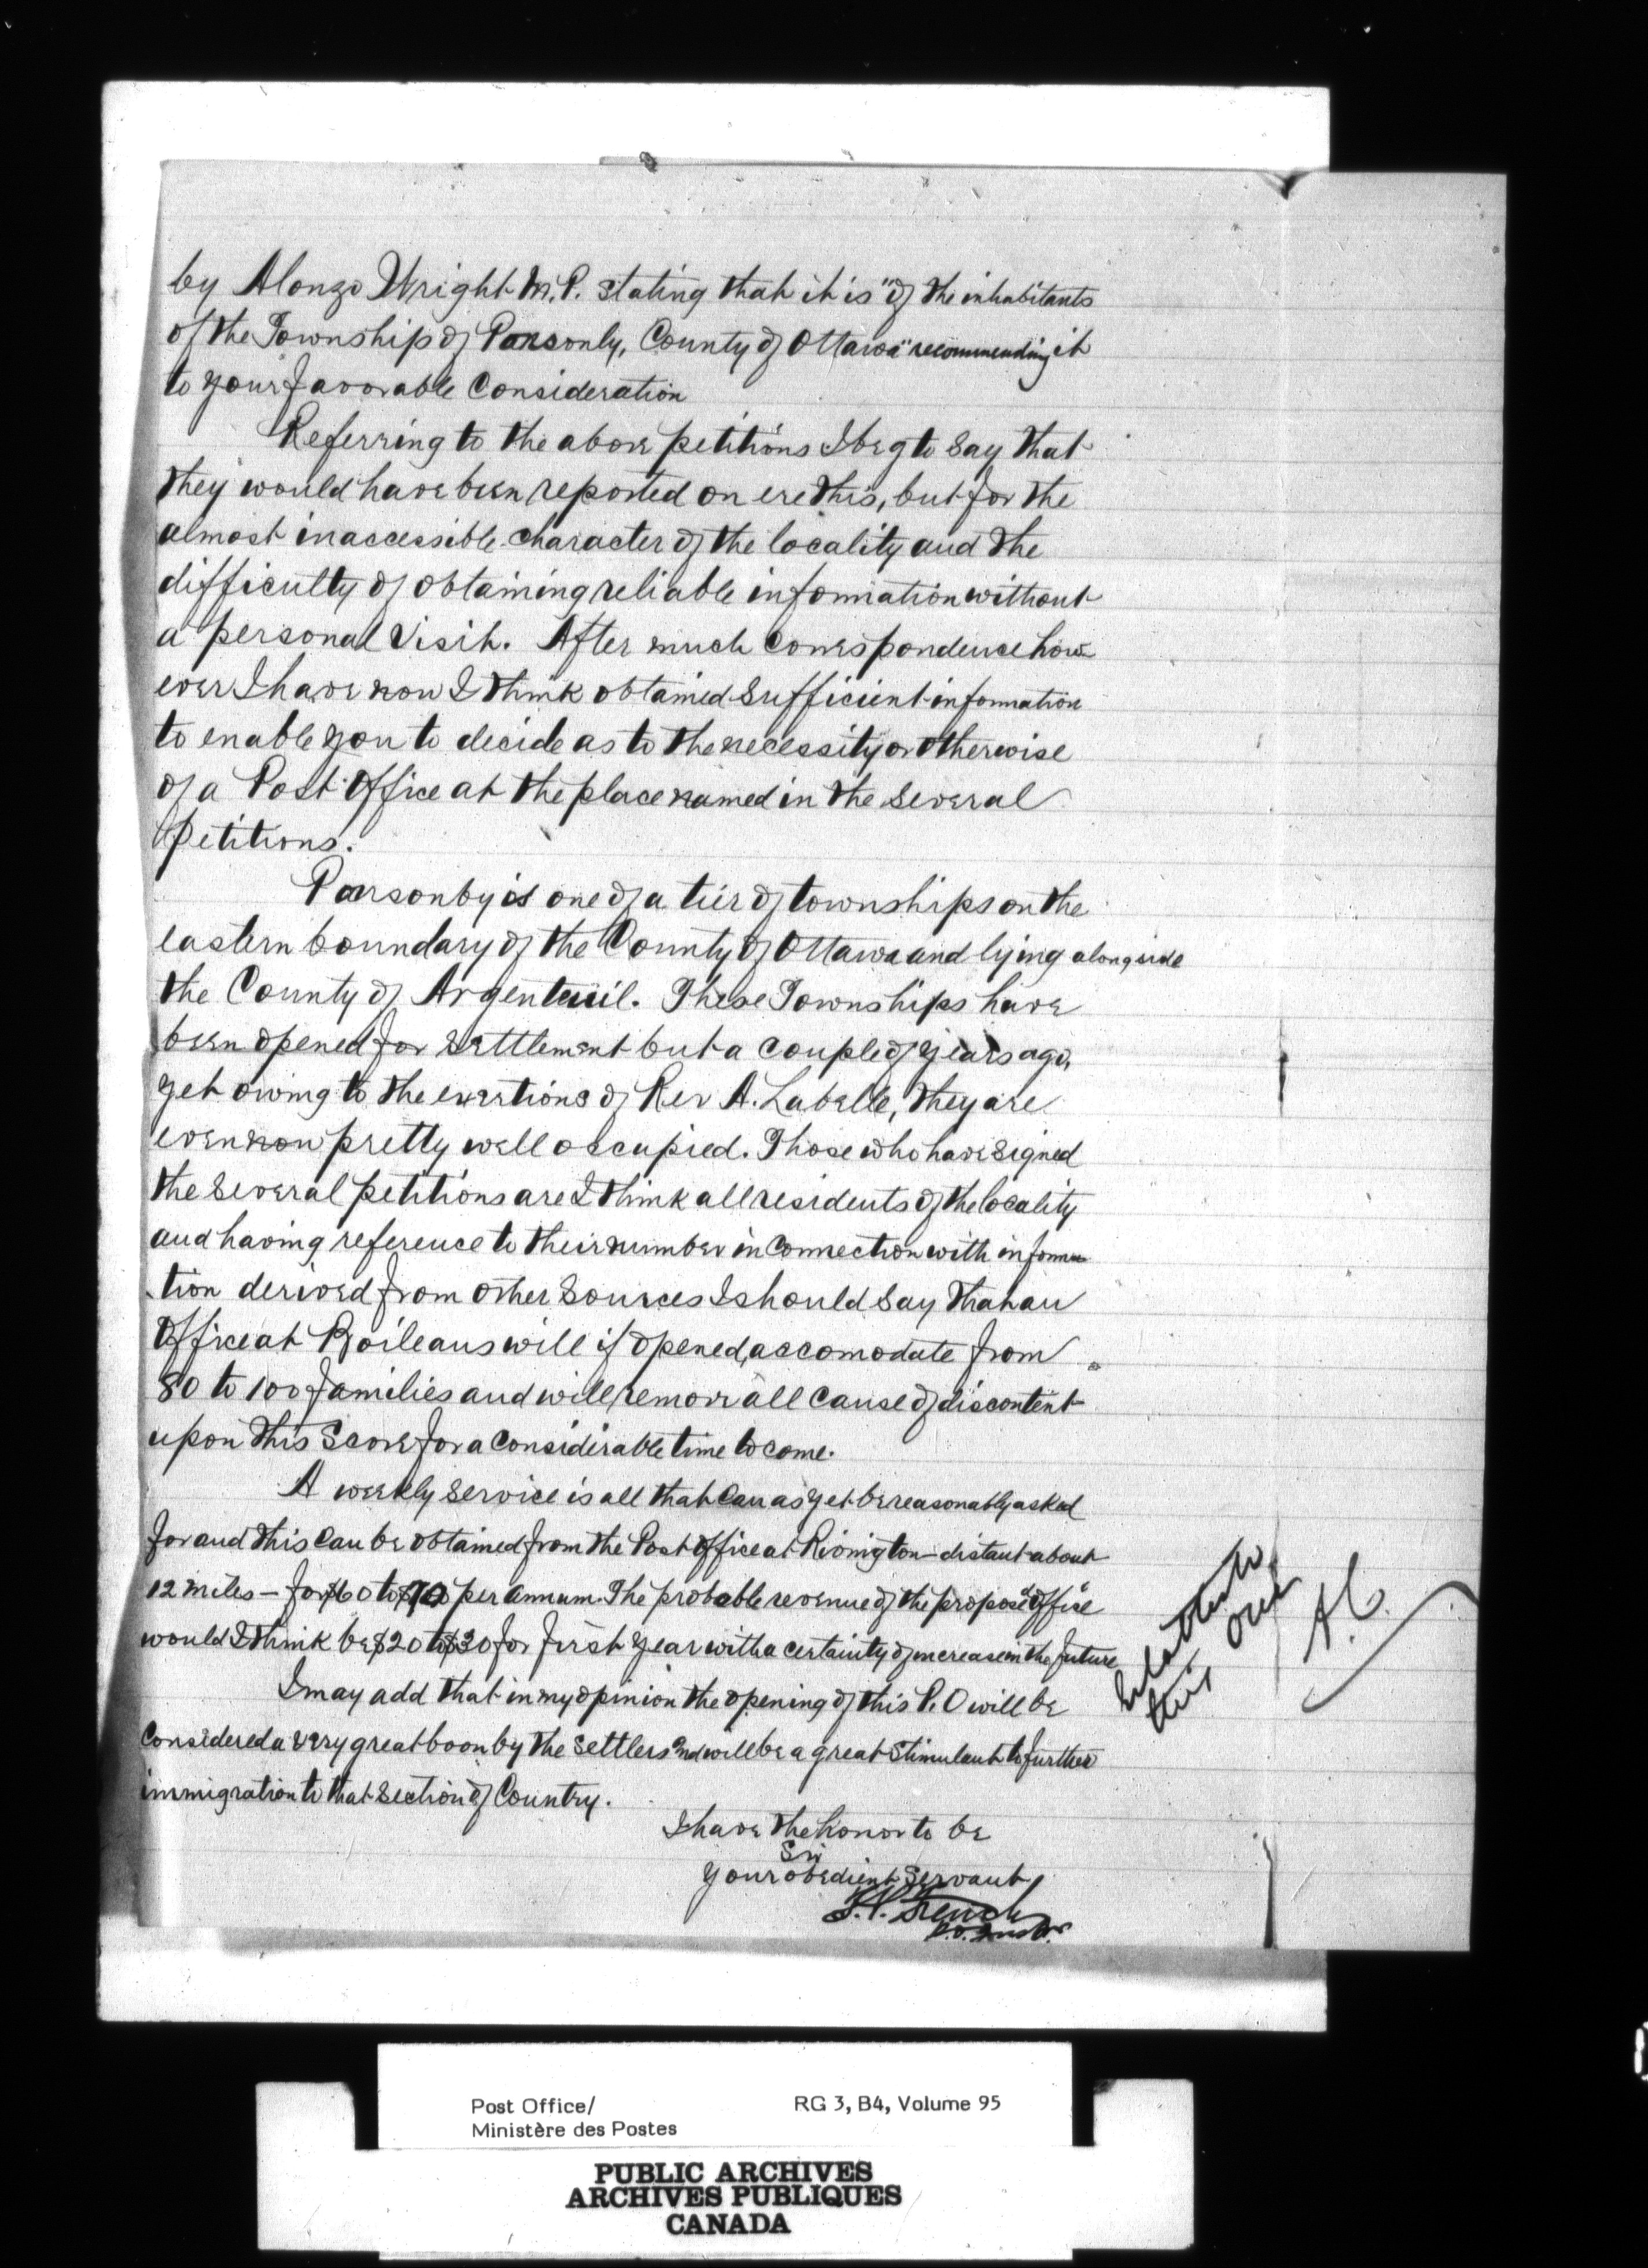 by Alonzo Wright M.P. stating that it is "of the inhabitants
of the Township of Ponsonly, County of Ottawa" recommending it
to your favorable Consideration
Referring to the above petitions I beg to say that
they would have been reported on ere this, but for the
almost inaccessible character of the locality and the
difficulty of obtaining reliable information without
a personal visit. After much Correspondence how
ever I have now I think obtained sufficient information
to enable you to decide as to the necessity or otherwise
of a Post Office at the place named in the several
petitions.
Ponsonby is one of a tier of townships on the
eastern boundary of the County of Ottawa and lying alongside
the County of Argenteuil. These Townships have
been opened for settlement but a couple of years ago,
yet owing to the exertions of Rev A. Labelle, they are
even now pretty well occupied. Those who have signed
the several petitions are I think all residents of the locality
and having reference to their number in Connection with informa
tion derived from other sources I should say that an
Office at Boileaus will if opened, accomodate from
80 to 100 families and will remove all cause of discontent
upon this score for a considerable time to come.
A weekly service is all that can as yet be reasonably asked
for and this can be obtained from the Post Office at Rivington distant about
12 miles - for $60 to $70 per annum. The probable revenue of the proposed Office
would I think be $20 to $30 for first year with a certainty of increase in the future
I may add that in my opinion the opening of this P.O will be
considered a very great boon by the settlers and will be a great stimulant to further
immigration to that section of Country.
I have the honor to be
Sir
Your obedient Servant
T.P. French
P.O. Inspr.
A.C.
Post Office/
Ministère des Postes
RG 3, B4, Volume 95
PUBLIC ARCHIVES
ARCHIVES PUBLIQUES
CANADA